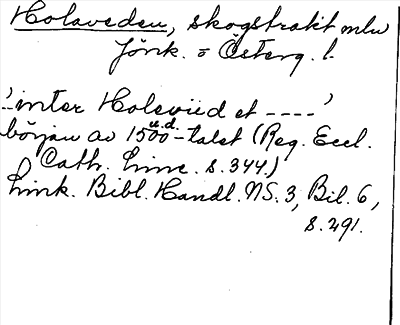 Holaveden, skogstrakt mlw
Jönk. o Österg. l.
'inter Holeviid et ----'
u.d.
början av 1500-talet (Reg. Eccl.
Cath. Linc. s. 344.)
Link. Bibl. Handl. NS. 3, Bil. 6,
s. 291.